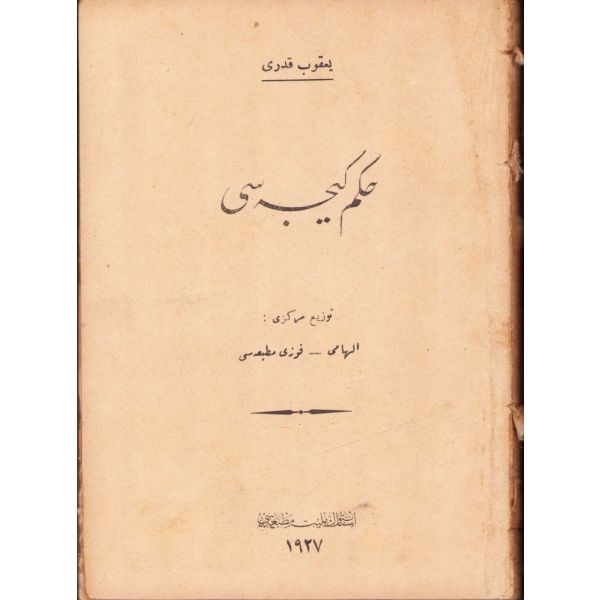 يعقوب قدرى
حكم گيجه سى
توزيع مركزى :
الهامى — فوزى مطبعه سى
استانبول ملليت مطبعه سى
١٩٢٧